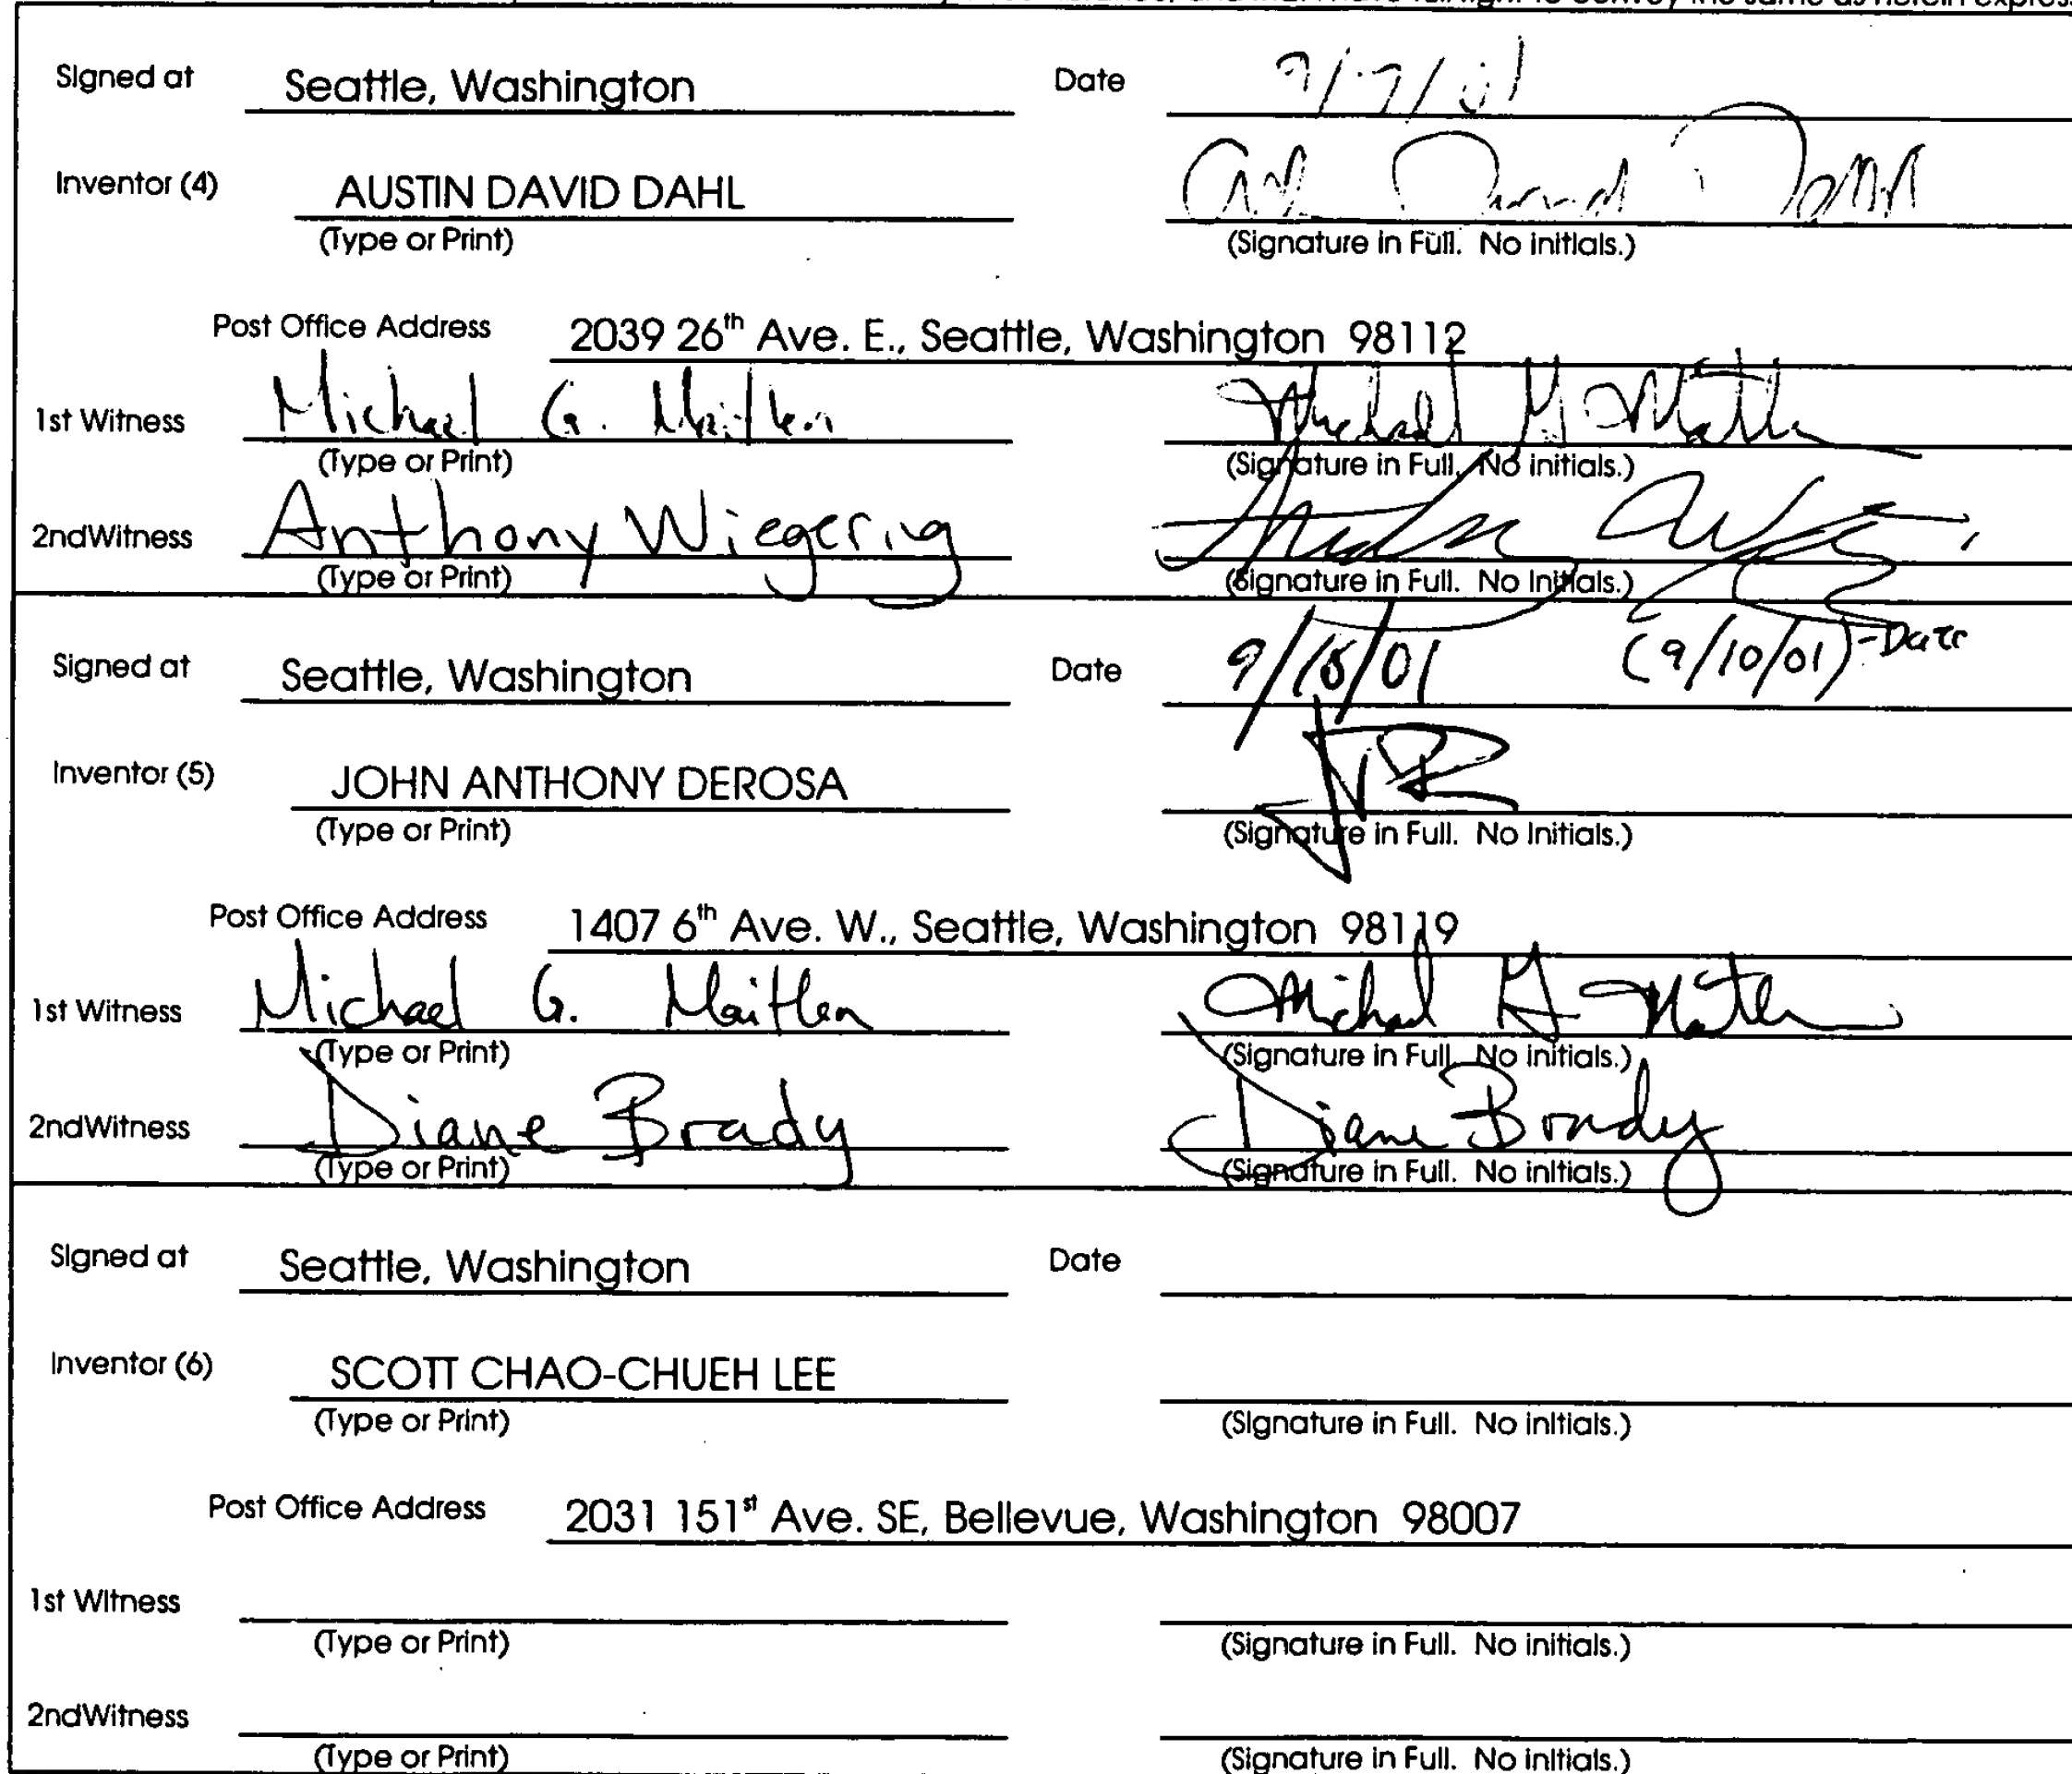 convey the same as herein
Signed at Seattle, Washington Date 9/7/01
Inventor (4) AUSTIN DAVID DAHL
(Type or Print) (Signature in Full. No initials.)
Post Office Address 2039 26th Ave. E., Seattle, Washington 98112
1st Witness Michael G. Maitlen
(Type or Print) (Signature in Full. No initials.)
2ndWitness Anthony Wiegering
(Type or Print) (Signature in Full. No Initials.)
Signed at Seattle, Washington Date 9/18/01 (9/10/01)-Date
Inventor (5) JOHN ANTHONY DEROSA
(Type or Print) (Signature in Full. No Initials.)
Post Office Address 1407 6th Ave. W., Seattle, Washington 98119
1st Witness Michael G. Maitlen Michael G Maitlen
(Type or Print) (Signature in Full. No initials.)
2ndWitness Diane Brady Diane Brady
(Type or Print) (Signature in Full. No initials.)
Signed at Seattle, Washington Date
Inventor (6) SCOTT CHAO-CHUEH LEE
(Type or Print) (Signature in Full. No initials.)
Post Office Address 2031 151st Ave. SE, Bellevue, Washington 98007
1st Witness
(Type or Print) (Signature in Full. No initials.)
2ndWitness
(Type or Print) (Signature in Full. No initials.)